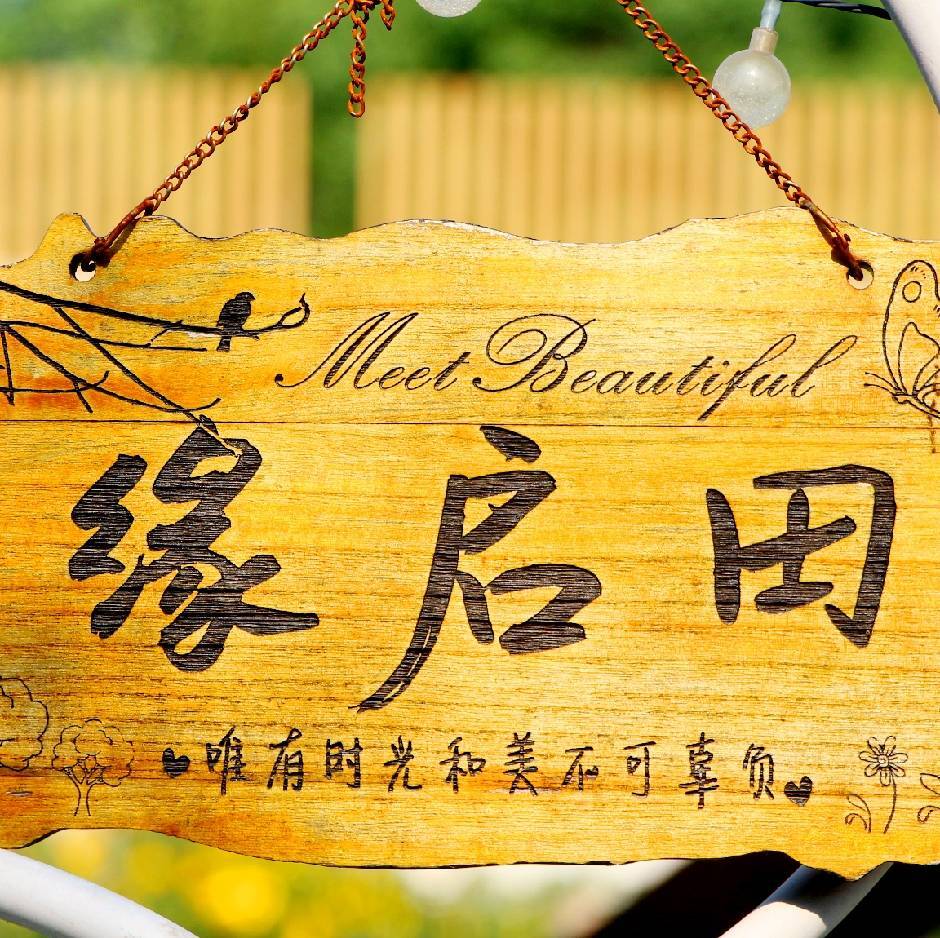 Meet Beautiful
缘启田
唯有时光和美不可辜负